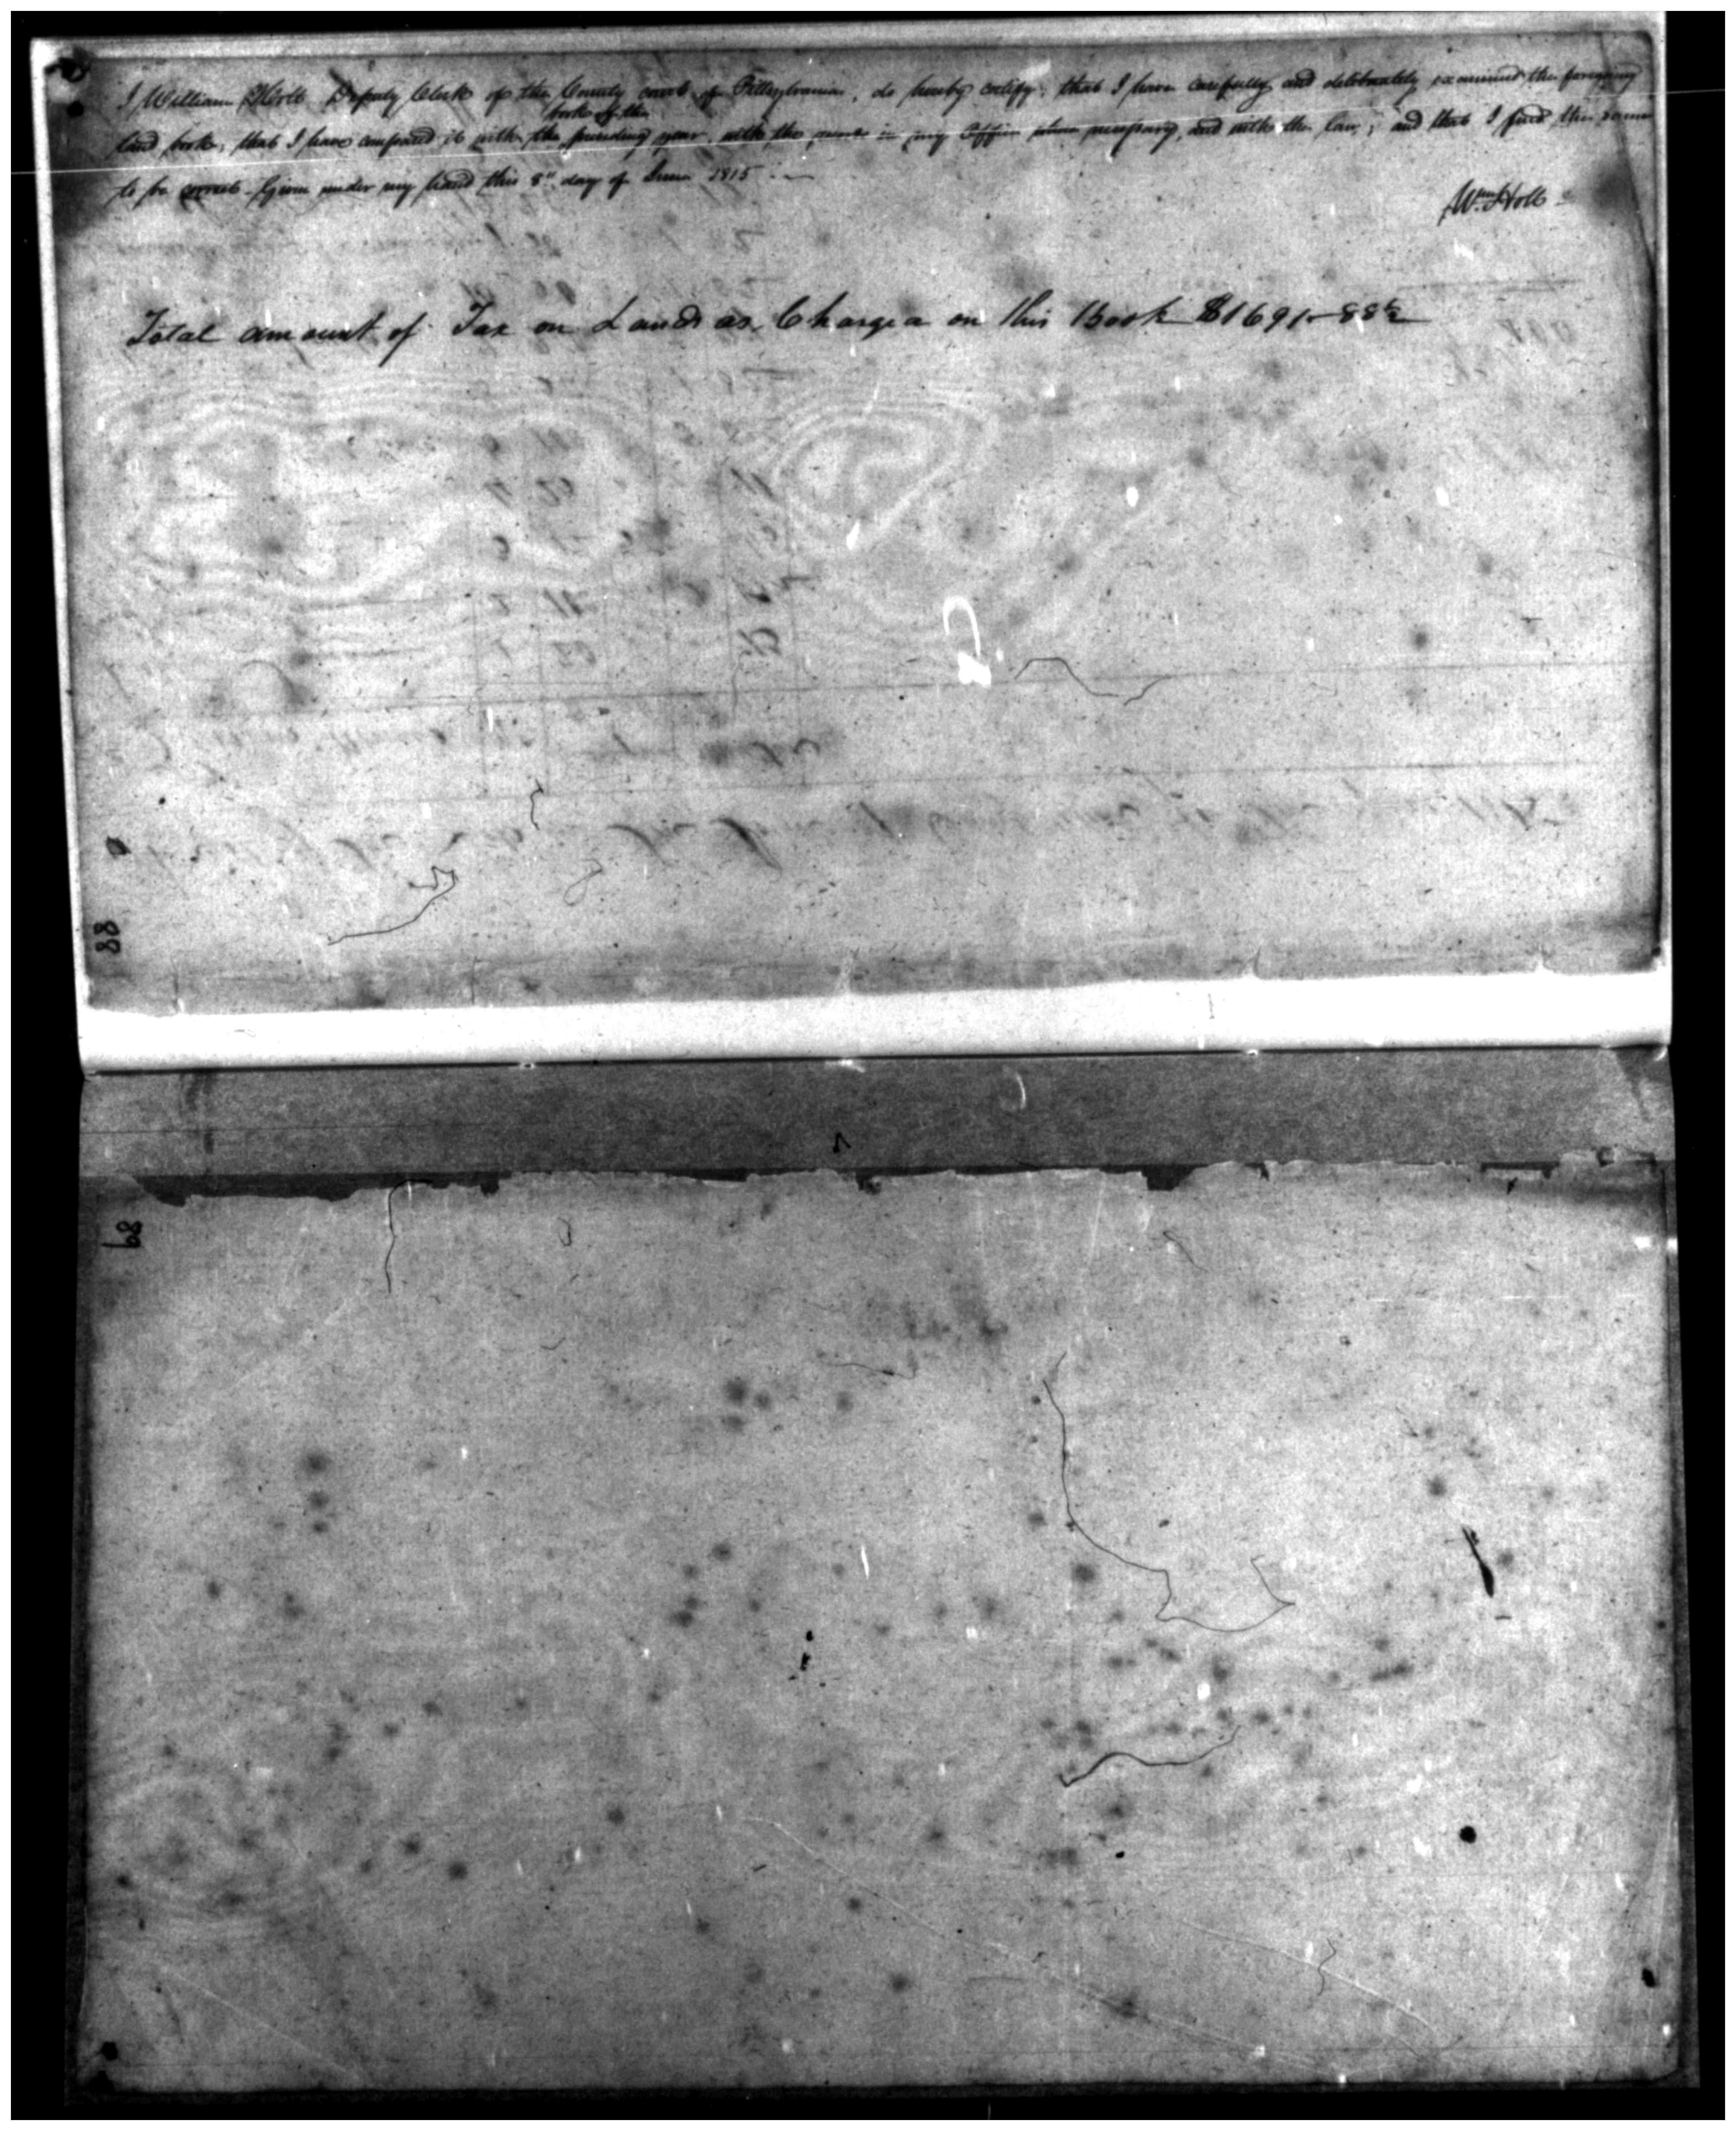 I William Holt Deputy Clerk of the County court of Pittsylvania, do hereby certify, that I have carefully and deliberately examined the foregoing
book of the
land book, that I have compared it with the preceding year, with the in my office when necessary, and with the law; and that I find the same
to be correct. Given under my hand this 8th day of June 1815
Wm Holt
Total amount of Tax on Lands as Charged on this Book $1691-88½
88
89